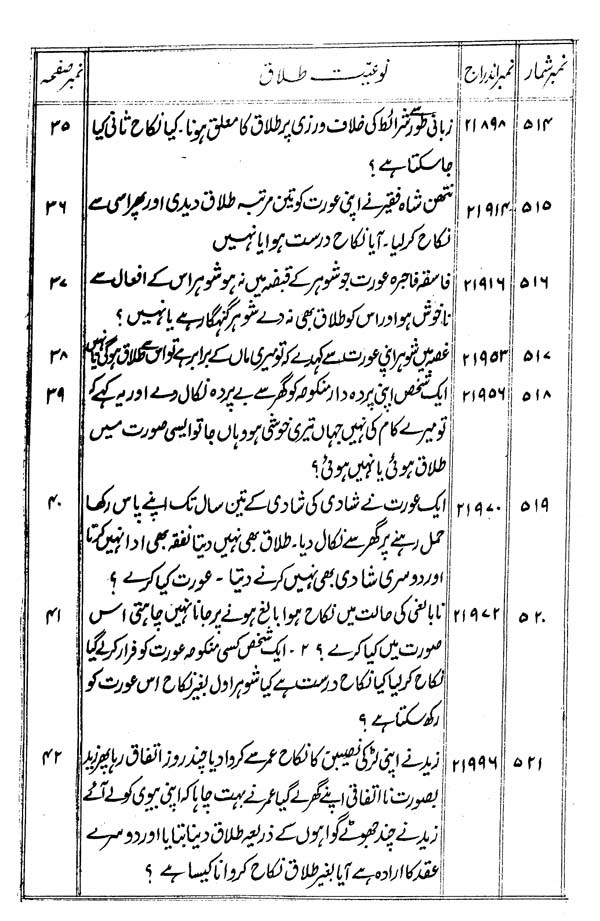 نمبر شمار نمبر اندراج نوعیت طلاق نمبر صفحہ
۵۱۴ ۲۱۸۹۸ زبانی طور سے شرائط کی خلاف ورزی پر طلاق کا معلق ہونا۔ کیا نکاح ثانی کیا ۳۵
جا سکتا ہے ؟
۵۱۵ ۲۱۹۱۴ نتھن شاہ فقیر نے اپنی عورت کو تین مرتبہ طلاق دیدی اور پھر اسی سے ۳۶
نکاح کر لیا۔ آیا نکاح درست ہوا یا نہیں
۵۱۶ ۲۱۹۱۶ فاسقہ فاجرہ عورت جو شوہر کے قبضہ میں نہ ہو شوہر اس کے افعال سے ۳۷
ناخوش ہو اور اس کو طلاق بھی نہ دے شوہر گنہگار ہے یا نہیں ؟
۵۱۷ ۲۱۹۵۳ غصہ میں شوہر اپنی عورت سے کہدے کہ تو میری ماں کے برابر ہے تو اس سے طلاق ہوگی یا نہیں ۳۸
۵۱۸ ۲۱۹۵۶ ایک شخص اپنی پردہ دار منکوحہ کو گھر سے بے پردہ نکال دے اور یہ کہے کہ ۳۹
تو میرے کام کی نہیں جہاں تیری خوشی ہو وہاں جا تو ایسی صورت میں
طلاق ہوئی یا نہیں ہوئی؟
۵۱۹ ۲۱۹۷۰ ایک عورت نے شادی کی شادی کے تین سال تک اپنے پاس رکھا ۴۰
حمل رہنے پر گھر سے نکال دیا۔ طلاق بھی نہیں دیتا نفقہ بھی ادا نہیں کرتا
اور دوسری شادی بھی نہیں کرنے دیتا ۔ عورت کیا کرے ؟
۵۲۰ ۲۱۹۷۲ نابالغی کی حالت میں نکاح ہوا بالغ ہونے پر جانا نہیں چاہتی اس ۴۱
صورت میں کیا کرے ؟ ۲ ۔ ایک شخص کسی منکوحہ عورت کو فرار کر لے گیا
نکاح کر لیا کیا نکاح درست ہے کیا شوہر اول بغیر نکاح اس عورت کو
رکھ سکتا ہے ؟
۵۲۱ ۲۱۹۹۶ زید نے اپنی لڑکی نصیبن کا نکاح عمر سے کروا دیا چند روز اتفاق رہا پھر زید ۴۲
بصورت نا اتفاقی اپنے گھر لے گیا عمر نے بہت چاہا کہ اپنی بیوی کو لے آئے
زید نے چند جھوٹے گواہوں کے ذریعہ طلاق دینا بتایا اور دوسرے
عقد کا ارادہ ہے آیا بغیر طلاق نکاح کروانا کیسا ہے ؟